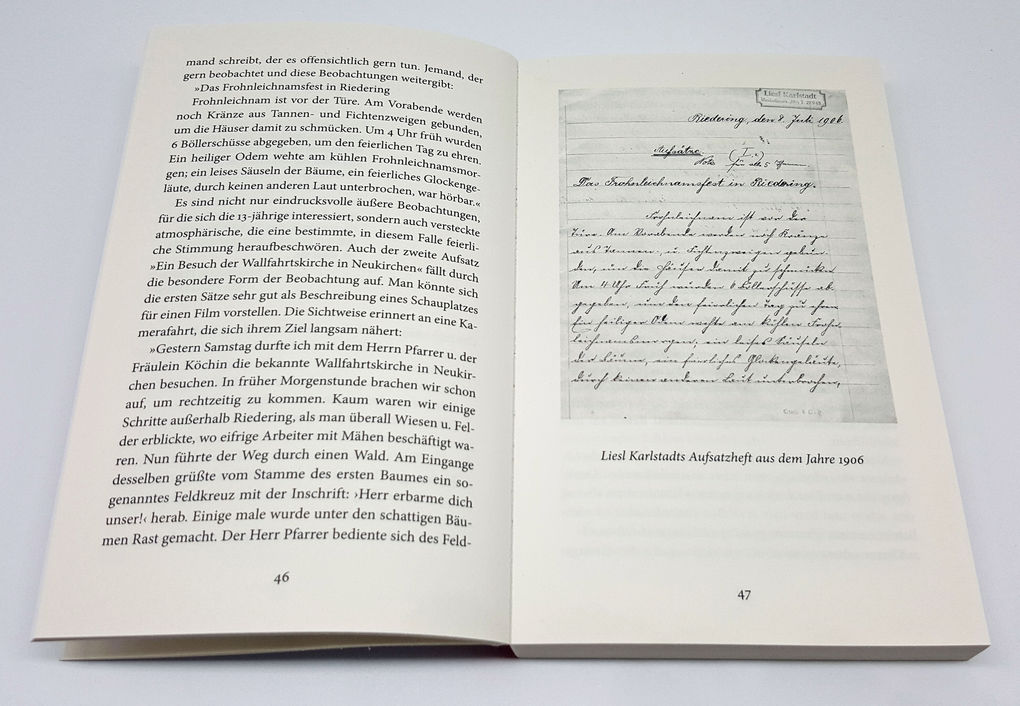 mand schreibt, der es offensichtlich gern tun. Jemand, der
gern beobachtet und diese Beobachtungen weitergibt:
»Das Frohnleichnamsfest in Riedering
Frohleichnam ist vor der Türe. Am Vorabende werden
noch Kränze aus Tannen- und Fichtenzweigen gebunden,
um die Häuser damit zu schmücken. Um 4 Uhr früh wurden
6 Böllerschüsse abgegeben, um den feierlichen Tag zu ehren.
Ein heiliger Odem wehte am kühlen Frohnleichnamsmor-
gen; ein leises Säuseln der Bäume, ein feierliches Glockenge-
läute, durch keinen anderen Laut unterbrochen, war hörbar.«
Es sind nicht nur eindrucksvolle äußere Beobachtungen,
für die sich die 13-jährige interessiert, sondern auch versteckte
atmosphärische, die eine bestimmte, in diesem Falle feierli-
che Stimmung heraufbeschwören. Auch der zweite Aufsatz
»Ein Besuch der Wallfahrtskirche in Neukirchen« fällt durch
die besondere Form der Beobachtung auf. Man könnte sich
die ersten Sätze sehr gut als Beschreibung eines Schauplatzes
für einen Film vorstellen. Die Sichtweise erinnert an eine Ka-
merafahrt, die sich ihrem Ziel langsam nähert:
»Gestern Samstag durfte ich mit dem Herrn Pfarrer u. der
Fräulein Köchin die bekannte Wallfahrtskirche in Neukir-
chen besuchen. In früher Morgenstunde brachen wir schon
auf, um rechtzeitig zu kommen. Kaum waren wir einige
Schritte außerhalb Riedering, als man überall Wiesen u. Fel-
der erblickte, wo eifrige Arbeiter mit Mähen beschäftigt wa-
ren. Nun führte der Weg durch einen Wald. Am Eingange
desselben grüßte vom Stamme des ersten Baumes ein so-
genanntes Feldkreuz mit der Inschrift: ›Herr erbarme dich
unser!‹ herab. Einige male wurde unter den schattigen Bäu-
men Rast gemacht. Der Herr Pfarrer bediente sich des Feld-
46
Liesl Karlstadt
Riedering, den 8. Juli 1906.
Aufsätze.
(I.)
Note für alle 5
Das Frohnleichnamsfest in Riedering.
Frohnleichnam ist vor der
Türe. Am Vorabende werden noch Kränze
aus Tannen- u. Fichtenzweigen gebun-
den, um die Häuser damit zu schmücken.
Um 4 Uhr früh wurden 6 Böllerschüsse ab-
gegeben, um den feierlichen Tag zu ehren.
Ein heiliger Odem wehte am kühlen Frohn-
leichnamsmorgen, ein leises Säuseln
der Bäume, ein feierliches Glockengeläute,
durch keinen anderen Laut unterbrochen,
Liesl Karlstadts Aufsatzheft aus dem Jahre 1906
47